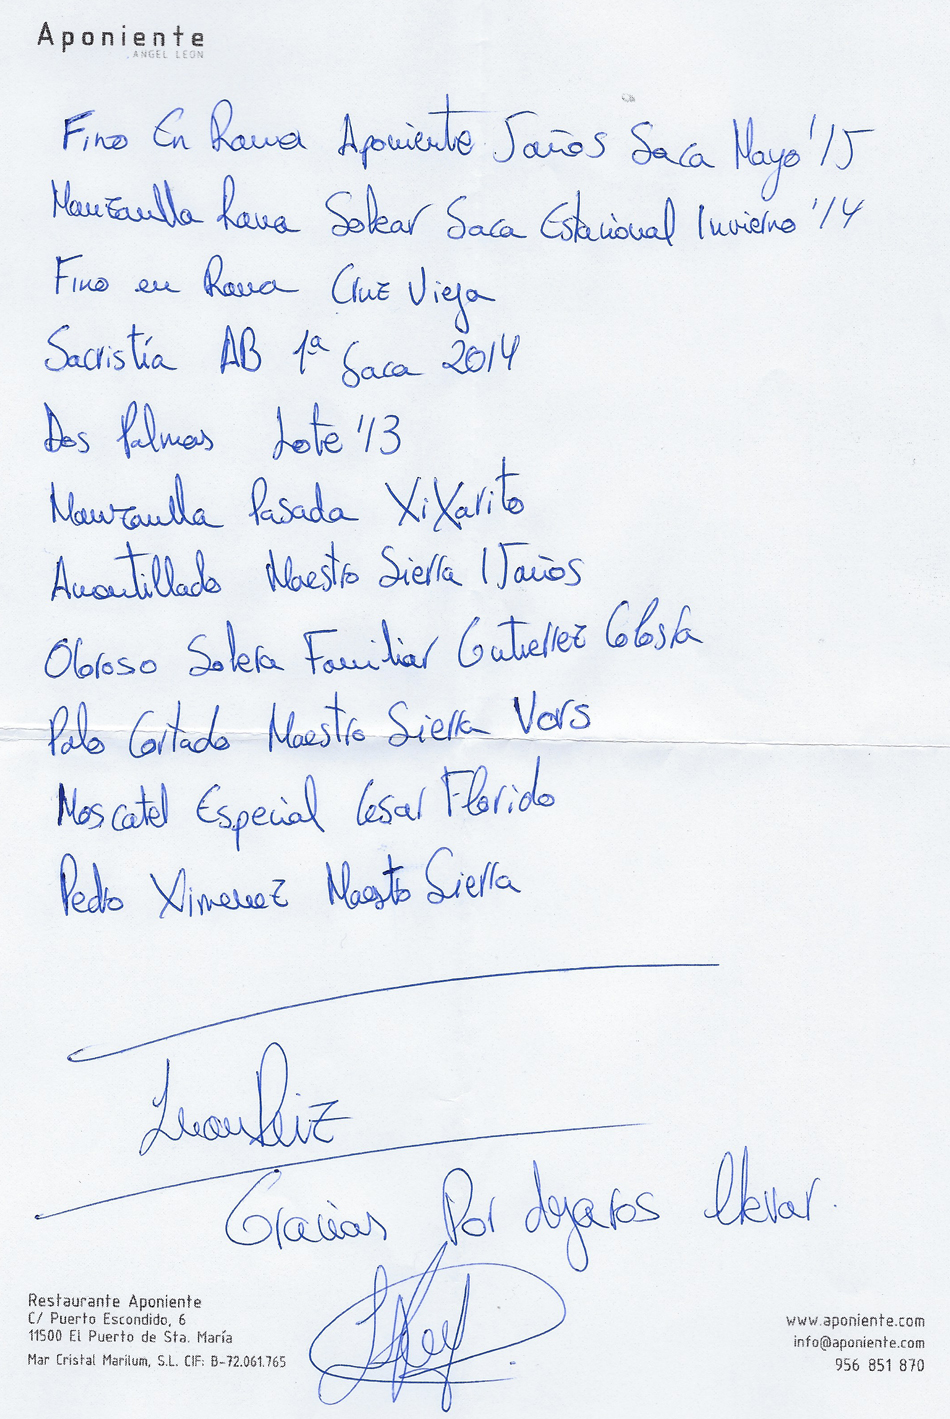 Aponiente
ANGEL LEÓN
Fino En Rama Aponiente 5 años Saca Mayo '15
Manzanilla Rama Solear Saca Estacional Invierno '14
Fino en Rama Cruz Vieja
Sacristía AB 1ª Saca 2014
Dos Palmas Lote '13
Manzanilla Pasada XiXarito
Amontillado Maestro Sierra 15 años
Oloroso Solera Familiar Gutierrez Colosía
Palo Cortado Maestro Sierra Vors
Moscatel Especial Cesar Florido
Pedro Ximenez Maestro Sierra
Juan Ruiz
Gracias Por dejaros llevar.
Restaurante Aponiente
C/ Puerto Escondido, 6
11500 El Puerto de Sta. María
Mar Cristal Marilum, S.L. CIF: B-72.061.765
www.aponiente.com
info@aponiente.com
956 851 870